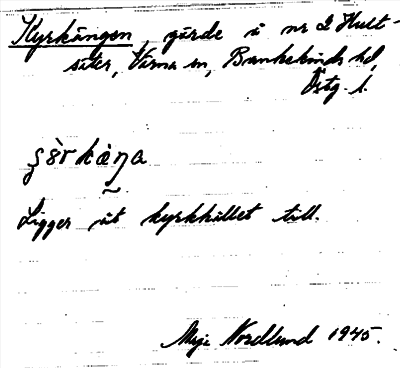 Kyrkängen, gärde å nr 2 Hult-
säter, Värna sn, Bankekinds hd,
Östg. l.
Ligger åt kyrkhållet till.
Nordlund 1945.